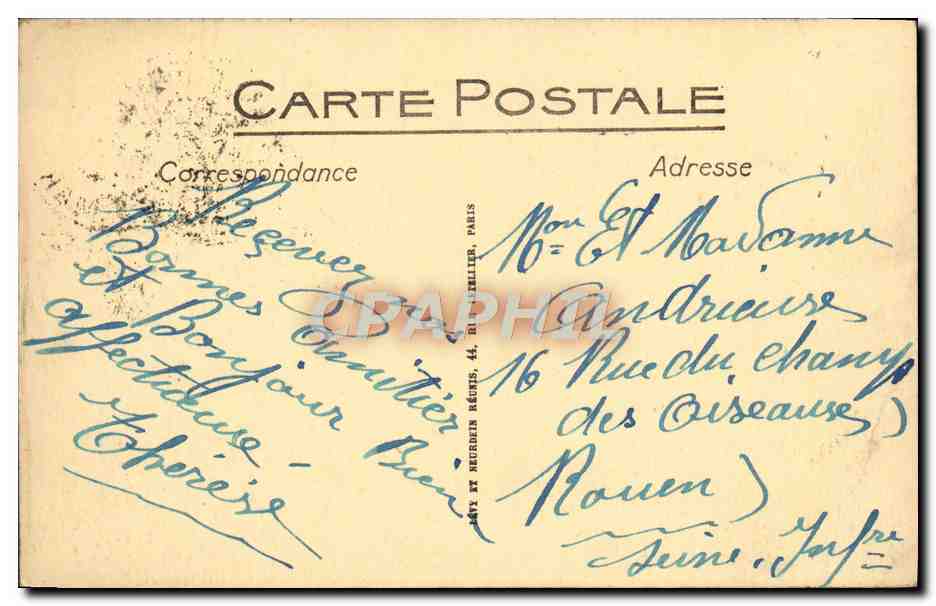 CARTE POSTALE
Correspondance
Adresse
Reçevez
Bonnes Amitiér
et Bonjour Bien
affectueuse
Thérèse
LÉVY ET NEURDEIN RÉUNIS, 44, RUE LETELLIER, PARIS
Mon Et Madame
Andrieuse
16 Rue du Champ
des Oiseause
Rouen
Seine. Infre
CPAPHIL